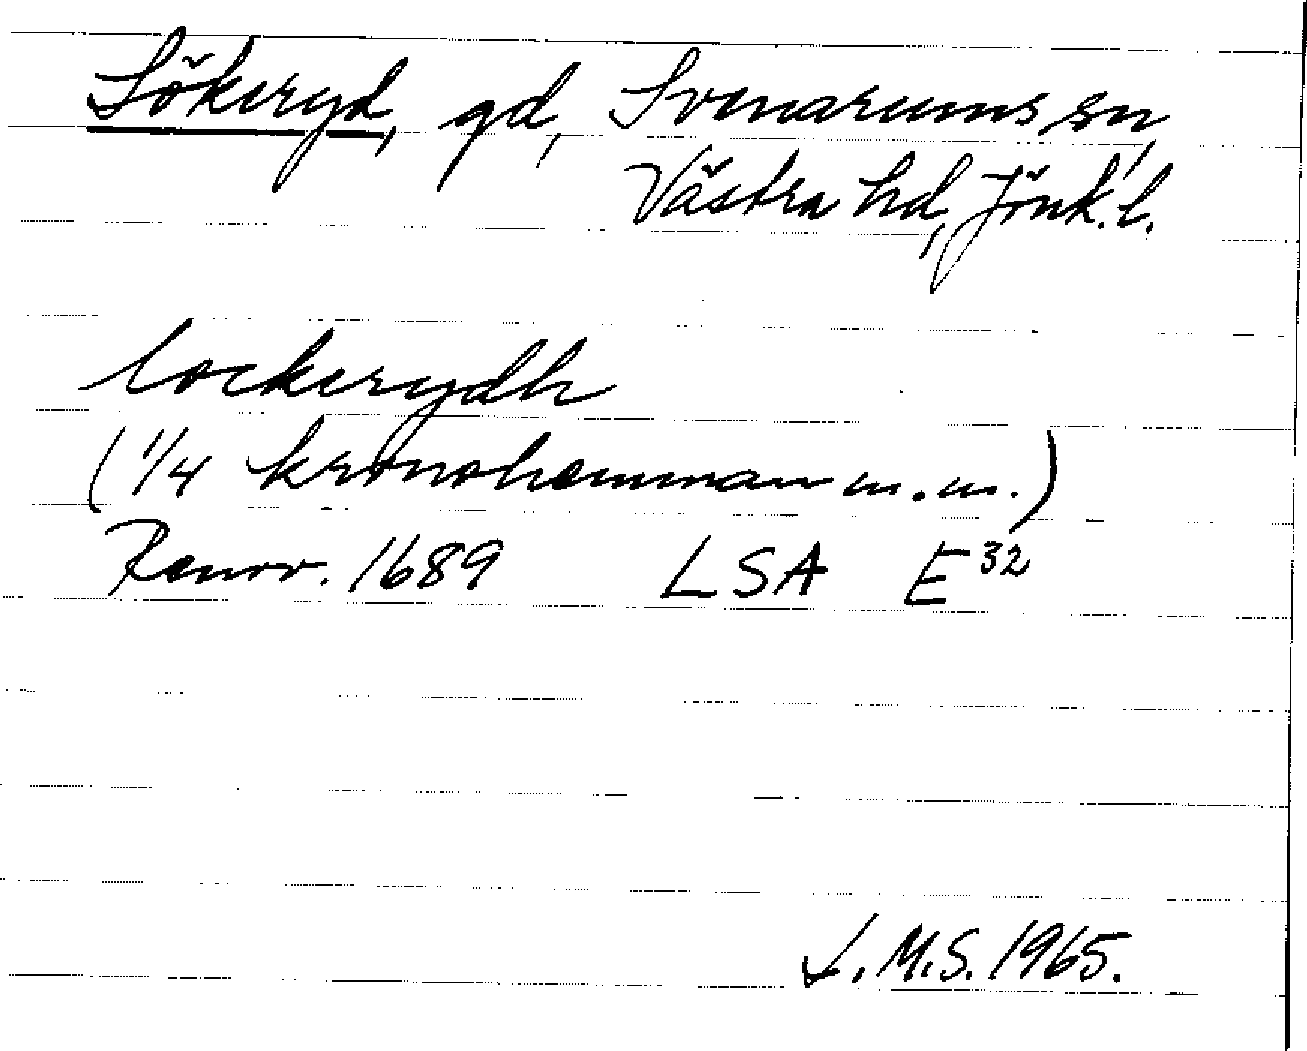 Lökeryd, gd, Svenarums sn,
Västra hd, Jönk. l.
lockerydh
(1/4 kronohemman m.m.)
Renov. 1689 LSA E³²
L.M.S. 1965.